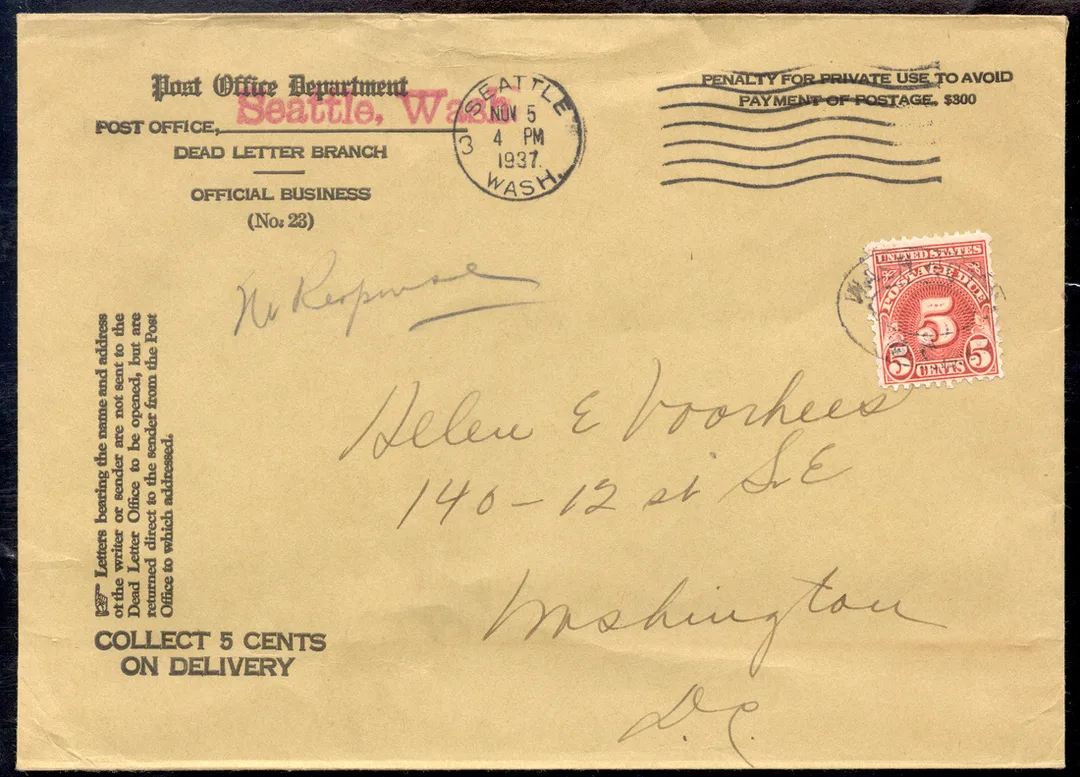 Post Office Department
Seattle, Wash.
POST OFFICE,
DEAD LETTER BRANCH
OFFICIAL BUSINESS
(No. 23)
SEATTLE
NOV 5
4 PM
1937
WASH.
3
PENALTY FOR PRIVATE USE TO AVOID
PAYMENT OF POSTAGE, $300
UNITED STATES
POSTAGE DUE
5
5 CENTS 5
No Response
Helen E Voorhees
140-12 st S.E
Washington
D.C.
☞ Letters bearing the name and address
of the writer or sender are not sent to the
Dead Letter Office to be opened, but are
returned direct to the sender from the Post
Office to which addressed.
COLLECT 5 CENTS
ON DELIVERY